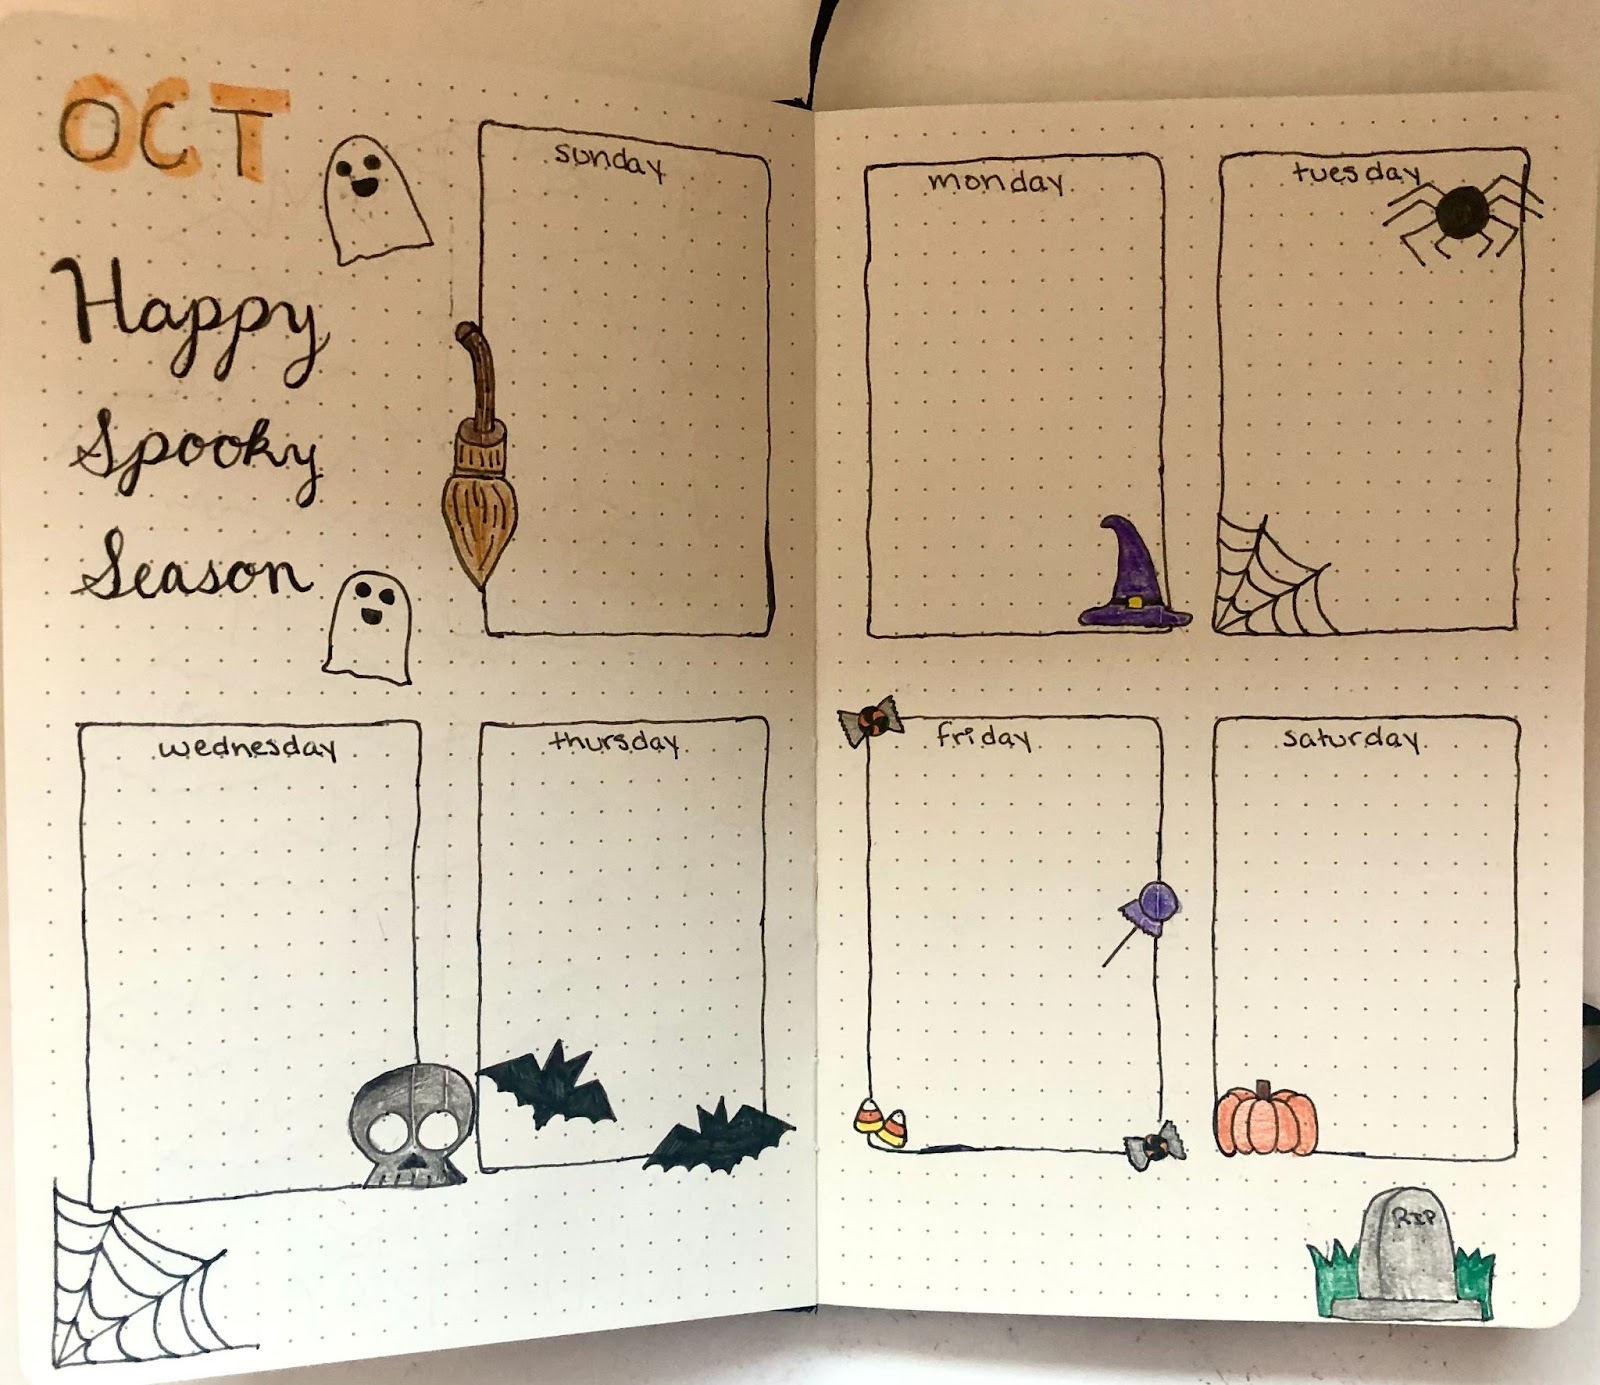 OCT
Happy
Spooky
Season
sunday
monday
tuesday
wednesday
thursday
friday
saturday
RIP